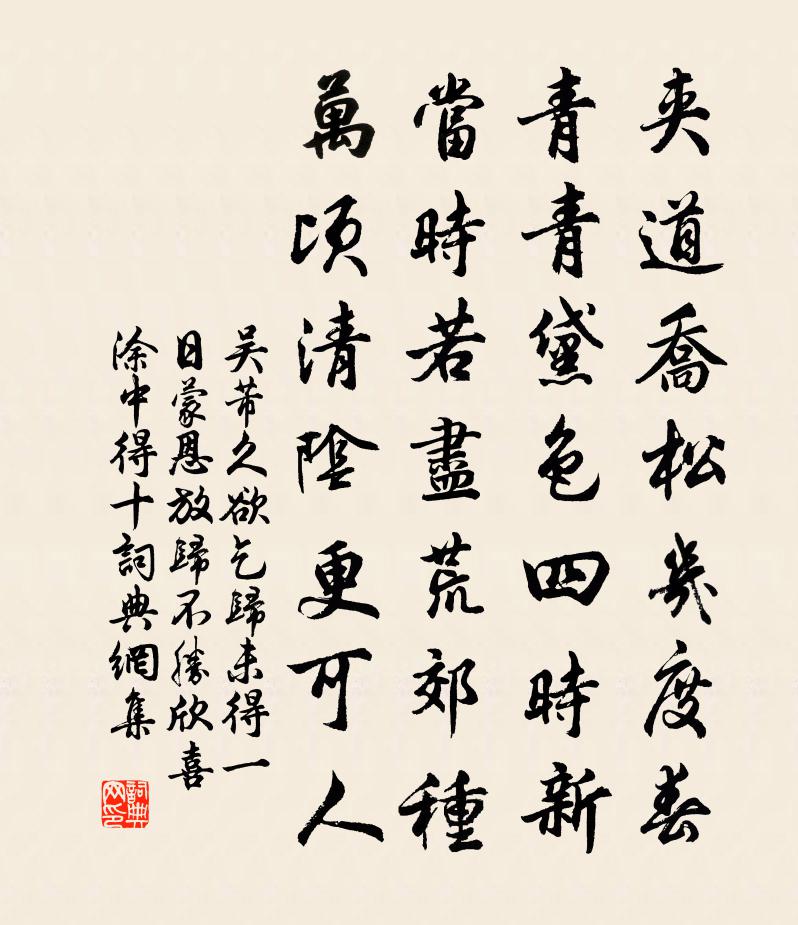 夾道喬松幾度春
青青黛色四時新
當時若盡荒郊種
萬頃清陰更可人
吴芾久欲乞歸未得一
日蒙恩放歸不勝欣喜
涂中得十詞典網集
詞典
网印